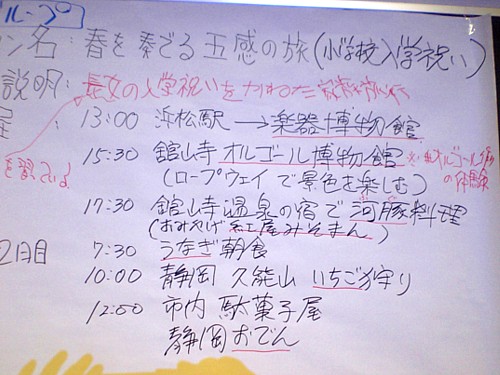 ループ
ン名:春を奏でる五感の旅(小学校入学祝い)
説明:長女の入学祝いをかねた
: 13:00 浜松駅→楽器博物館
15:30 舘山寺オルゴール博物館 ※オルゴール
を習っている (ロープウェイで景色を楽しむ) の体験
17:30 舘山寺温泉の宿で河豚料理
(おみやげ 紅屋みそまん)
2日目 7:30 うなぎ朝食
10:00 静岡 久能山 いちご狩り
12:00 市内 駄菓子屋
静岡おでん